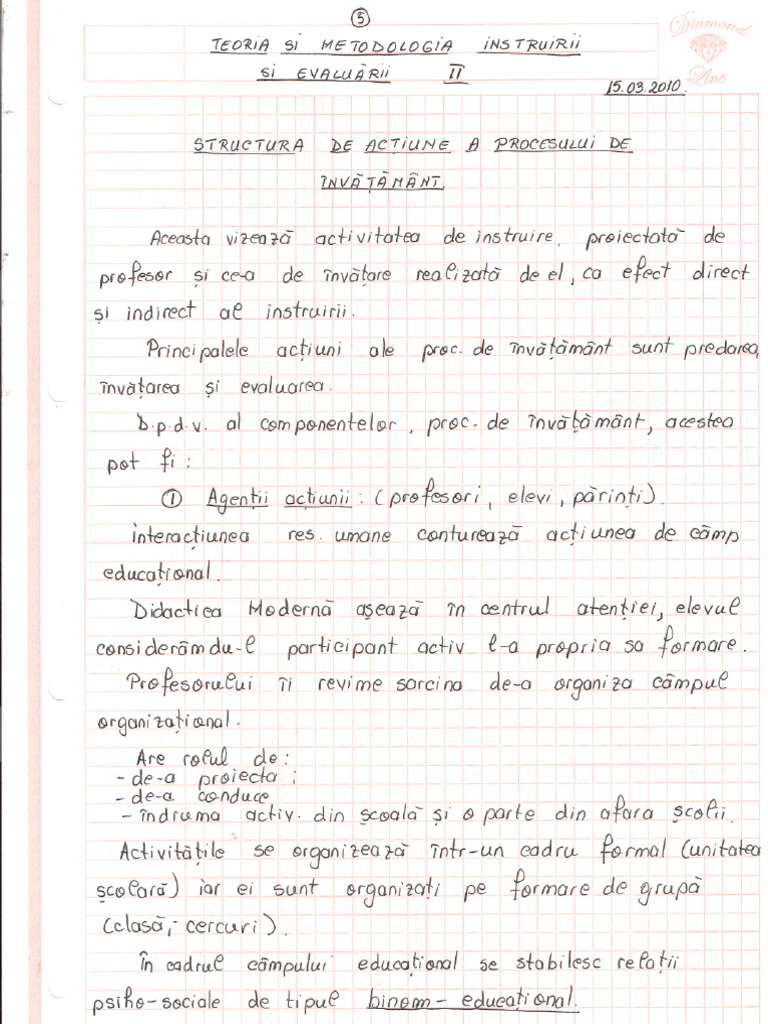 5
TEORIA SI METODOLOGIA INSTRUIRII
SI EVALUĂRII II
Diamond
Line
15.03.2010.
STRUCTURA DE ACȚIUNE A PROCESULUI DE
ÎNVĂȚĂMÂNT
Aceasta vizează activitatea de instruire, proiectată de
profesor și ce-a de învătare realizată de el, ca efect direct
și indirect al instruirii.
Principalele acțiuni ale proc. de învățământ sunt predarea,
învatarea și evaluarea.
D.p.d.v. al componentelor, proc. de învățământ, acestea
pot fi:
1 Agenții acțiunii: (profesori, elevi, părinți).
interacțiunea res. umane conturează acțiunea de câmp
educațional.
Didactica Modernă așează în centrul atenției, elevul
considerâmdu-l participant activ l-a propria sa formare.
Profesorului îi revime sarcina de-a organiza câmpul
organizațional.
Are rolul de:
- de-a proiecta;
- de-a conduce
- îndruma activ. din școală și o parte din afara școlii.
Activitățile se organizează într-un cadru formal (unitatea
școlară) iar ei sunt organizați pe formare de grupă
(clasă,- cercuri).
În cadrul câmpului educațional se stabilesc relații
psiho-sociale de tipul binom-educațional.